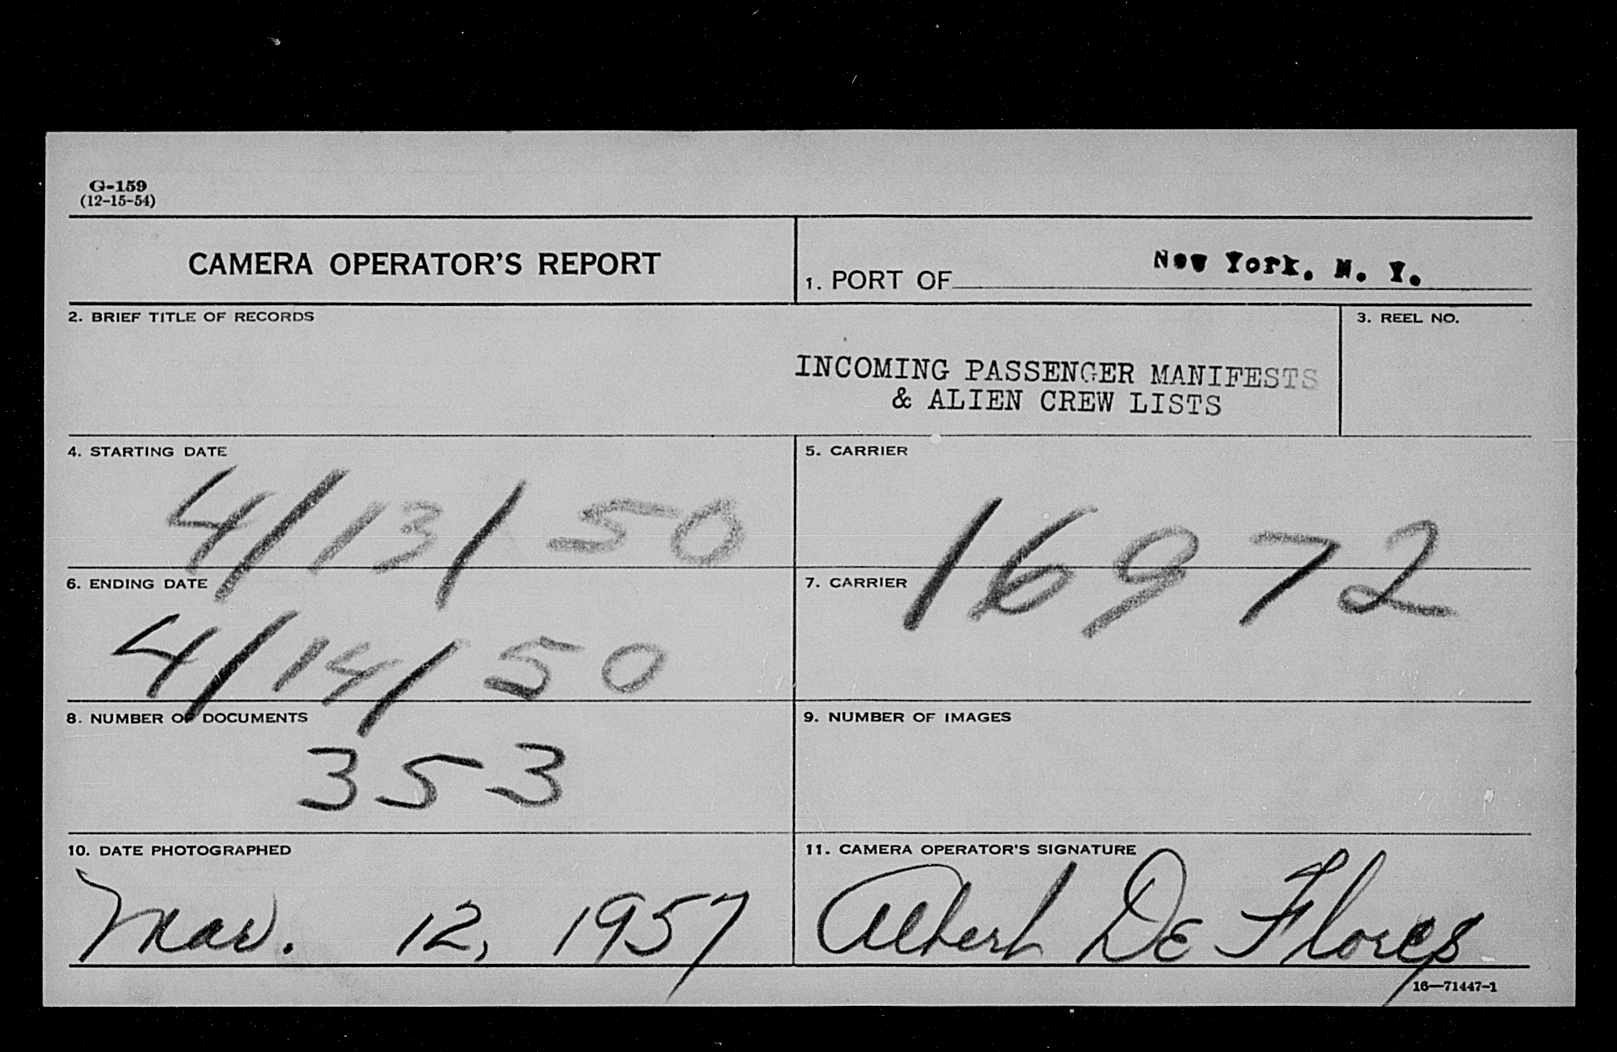 G-159
(12-15-54)
CAMERA OPERATOR'S REPORT
1. PORT OF New York. N. Y.
2. BRIEF TITLE OF RECORDS
INCOMING PASSENGER MANIFESTS
& ALIEN CREW LISTS
3. REEL NO.
4. STARTING DATE
4/13/50
5. CARRIER
16972
6. ENDING DATE
4/14/50
7. CARRIER
8. NUMBER OF DOCUMENTS
353
9. NUMBER OF IMAGES
10. DATE PHOTOGRAPHED
Mar. 12, 1957
11. CAMERA OPERATOR'S SIGNATURE
Albert De Flores
16—71447-1